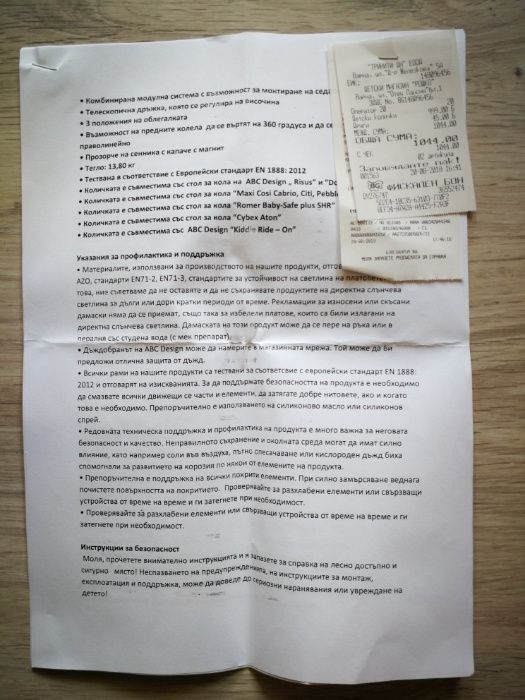 • Комбинирана модулна система с възможност за монтиране на седа
• Телескопична дръжка, която се регулира на височина
• 3 положения на облегалката
• Възможност на предните колела да се въртят на 360 градуса и да се
праволинейно
• Прозорче на сенника с капаче с магнит
• Тегло: 13,80 кг
• Тествана в съответствие с Европейски стандарт EN 1888: 2012
• Количката е съвместима със стол за кола на ABC Design „ Risus" и "Do
• Количката е съвместима със стол за кола "Maxi Cosi Cabrio, Citi, Pebbl
• Количката е съвместима със стол за кола "Romer Baby-Safe plus SHR"
• Количката е съвместима със стол за кола "Cybex Aton"
• Количката е съвместима със ABC Design "Kiddie Ride – On"
Указания за профилактика и поддръжка
• Материалите, използвани за производството на нашите продукти, отгов
AZO, стандарти EN71-2, EN71-3, стандартите за устойчивост на светлина на платовете
това, ние съветваме да не оставяте и да не съхранявате продуктите на директна слънчева
светлина за дълги или дори кратки периоди от време. Рекламации за износени или скъсани
дамаски няма да се приемат, също така за избелели платове, които са били излагани на
директна слънчева светлина. Дамаската на този продукт може да се пере на ръка или в
пералня със студена вода (с мек препарат).
• Дъждобранът на ABC Design може да намерите в магазинната мрежа. Той може да Ви
предложи отлична защита от дъжд.
• Всички рами на нашите продукти са тествани за съответствие с европейски стандарт EN 1888:
2012 и отговарят на изискванията. За да поддържате безопасността на продукта е необходимо
да смазвате всички движещи се части и елементи, да затягате добре нитовете, ако и когато
това е необходимо. Препоръчително е използването на силиконово масло или силиконов
спрей.
• Редовната техническа поддръжка и профилактика на продукта е много важна за неговата
безопасност и качество. Неправилното съхранение и околната среда могат да имат силно
влияние, като например соли във въздуха, пътно опесачаване или кислороден дъжд биха
спомогнали за развитието на корозия по някои от елементите на продукта.
• Препоръчителна е поддръжка на всички покрити елементи. При силно замърсяване веднага
почистете повърхността на покритието. Проверявайте за разхлабени елементи или свързващи
устройства от време на време и ги затегнете при необходимост.
• Проверявайте за разхлабени елементи или свързващи устройства от време на време и ги
затегнете при необходимост.
Инструкции за безопасност
Моля, прочетете внимателно инструкцията и я запазете за справка на лесно достъпно и
сигурно място! Неспазването на предупрежденията, на инструкциите за монтаж,
експлоатация и поддръжка, може да доведе до сериозни наранявания или увреждане на
детето!
ЕИК: 148096456
ДЕТСКИ МАГАЗИН "РОШКО"
Оператор 20
999.00 Б
45.00 Б
МЕЖД. СУМА: 1044.00
ОБЩА СУМА: 1044.00
1044.00
02 артикула
20-08-2018 16:41
ФИСКАЛЕН БОН